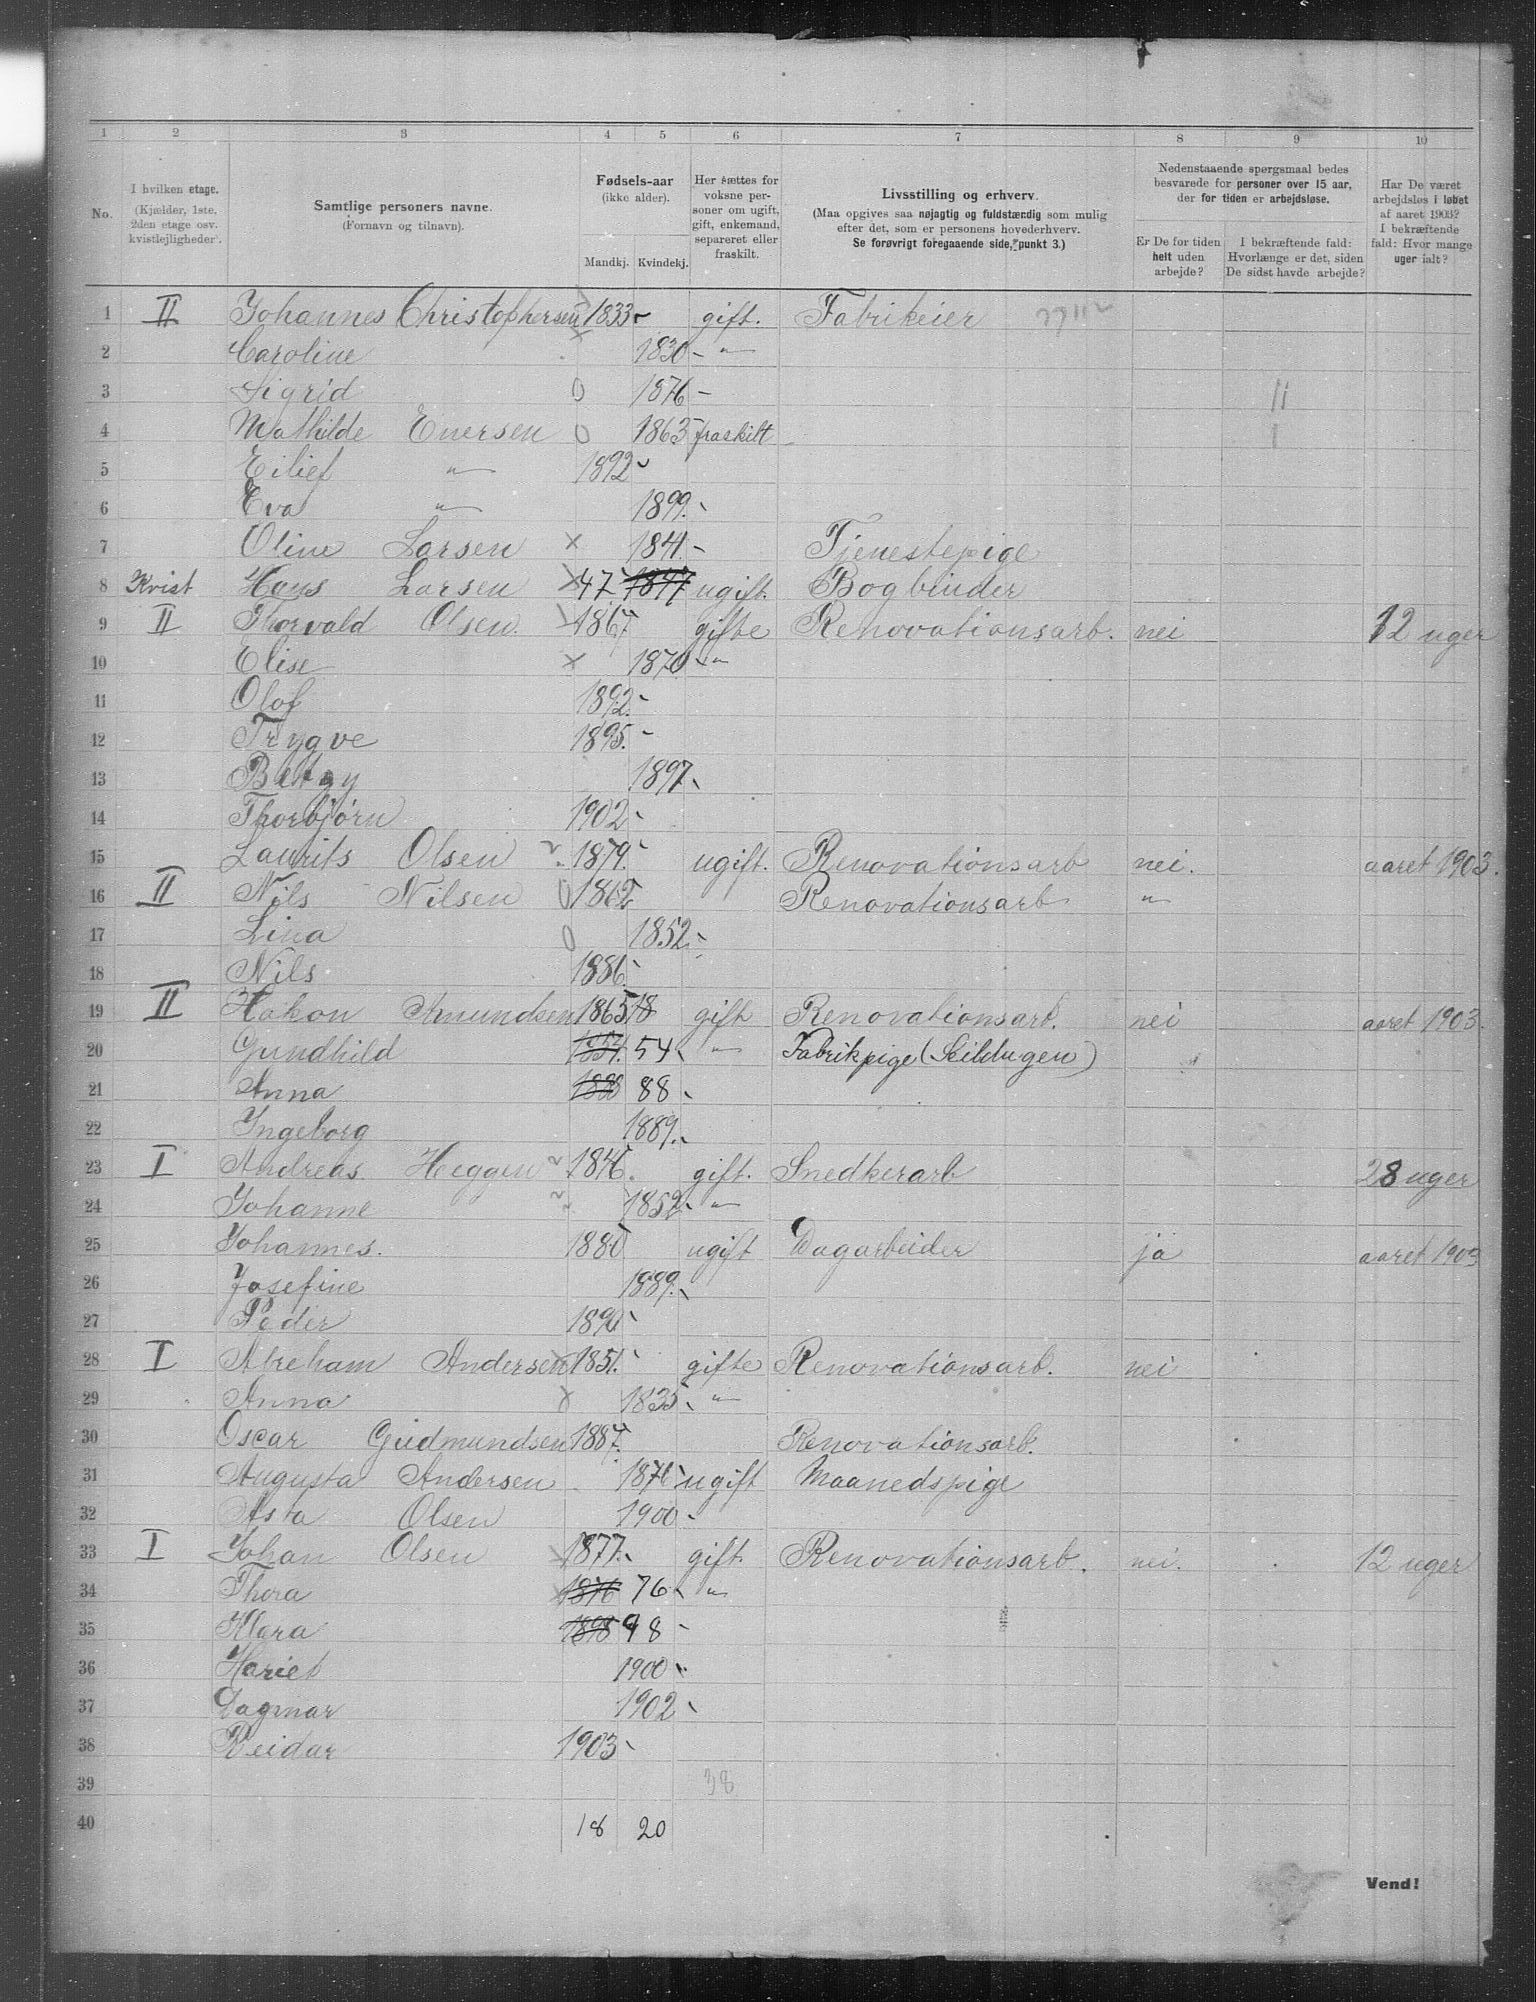 1 2 3 4 5 6 7 8 9 10
No.
I hvilken etage. (Kjælder, 1ste, 2den etage osv. kvistlejligheder).
Samtlige personers navne. (Fornavn og tilnavn).
Fødsels-aar (ikke alder).
Mandkj. Kvindekj.
Her sættes for voksne personer om ugift, gift, enkemand, separeret eller fraskilt.
Livsstilling og erhverv.
(Maa opgives saa nøjagtig og fuldstændig som mulig efter det, som er personens hovederhverv.
Se forøvrigt foregaaende side, punkt 3.)
Nedenstaaende spørgsmaal bedes besvarede for personer over 15 aar, der for tiden er arbejdsløse.
Er De for tiden helt uden arbejde?
I bekræftende fald: Hvorlænge er det, siden De sidst havde arbejde?
Har De været arbejdsløs i løbet af aaret 1903? I bekræftende fald: Hvor mange uger ialt?
1 II Johannes Christophersen 1833 - gift. Fabrikeier
2 Caroline 1830 - "
3 Sigrid 0 1876 - 11
4 Mathilde Enersen 0 1863 fraskilt 1
5 Eilief " 1892
6 Eva " 1899.
7 Oline Larsen x 1841 - Tjenestepige
8 Kvist Hans Larsen x 47 1847 ugift. Bogbinder
9 II Thorvald Olsen. 1867 gifte Renovationsarb. nei 12 uger
10 Elise x 1870 "
11 Olof 1892.
12 Trygve 1895.
13 Betzy 1897
14 Thorbjørn 1902
15 Laurits Olsen 1879. ugift. Renovationsarb nei. aaret 1903.
16 II Nils Nilsen 0 1862 Renovationsarb "
17 Lina 0 1852
18 Nils 1886.
19 II Hakon Amundsen 1865 18 gift Renovationsarb. nei aaret 1903.
20 Gundhild 1854. 54 " Fabrikpige (Seildugen)
21 Anna 1888 88
22 Ingeborg 1889.
23 I Andreas. Heggen 1846. gift. Snedkerarb 28 uger
24 Johanne 1852 "
25 Johannes. 1880 ugift Dagarbeider ja aaret 1903
26 Josefine 1889.
27 Peder 1890
28 I Abreham Andersen 1851. gifte Renovationsarb. nei
29 Anna x 1835 "
30 Oscar Gudmundsen 1887. Renovationsarb.
31 Augusta Andersen 1876 ugift Maanedspige
32 Asta Olsen 1900
33 I Johan Olsen 1877. gift. Renovationsarb. nei. 12 uger
34 Thora 1876 76 "
35 Klara 1898 98
36 Hariet 1900
37 Dagmar 1902
38 Reidar 1903
39 38
40 18 20
Vend!